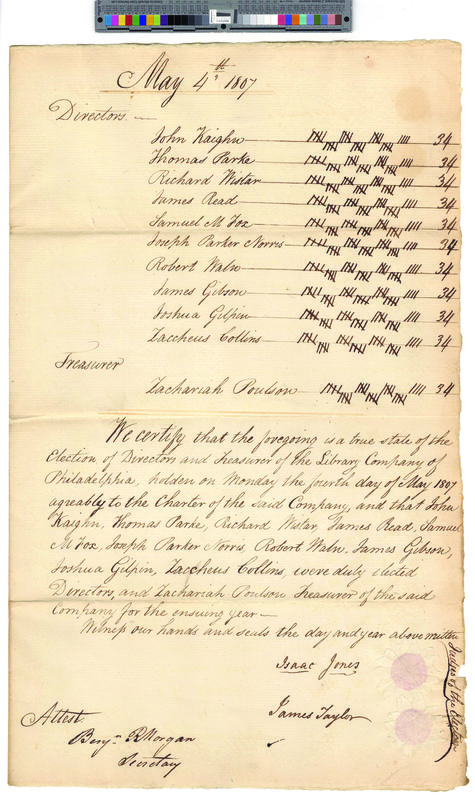 May 4th, 1807
Directors.
John Kaighn 34
Thomas Parke 34
Richard Wistar 34
James Read 34
Samuel M Fox 34
Joseph Parker Norris 34
Robert Waln 34
James Gibson 34
Joshua Gilpin 34
Zaccheus Collins 34
Treasurer
Zachariah Poulson 34
We certify that the foregoing is a true state of the
Election of Directors and Treasurer of the Library Company of
Philadelphia, holden on Monday the fourth day of May 1807
agreably to the Charter of the said Company, and that John
Kaighn, Thomas Parke, Richard Wistar, James Read, Samuel
M Fox, Joseph Parker Norris, Robert Waln, James Gibson,
Joshua Gilpin, Zaccheus Collins, were duly elected
Directors, and Zachariah Poulson Treasurer of the said
Company for the ensuing year—
Witness our hands and seals the day and year above written
Isaac Jones
James Taylor
Judges of the Election
Attest
Benjn R Morgan
Secretary